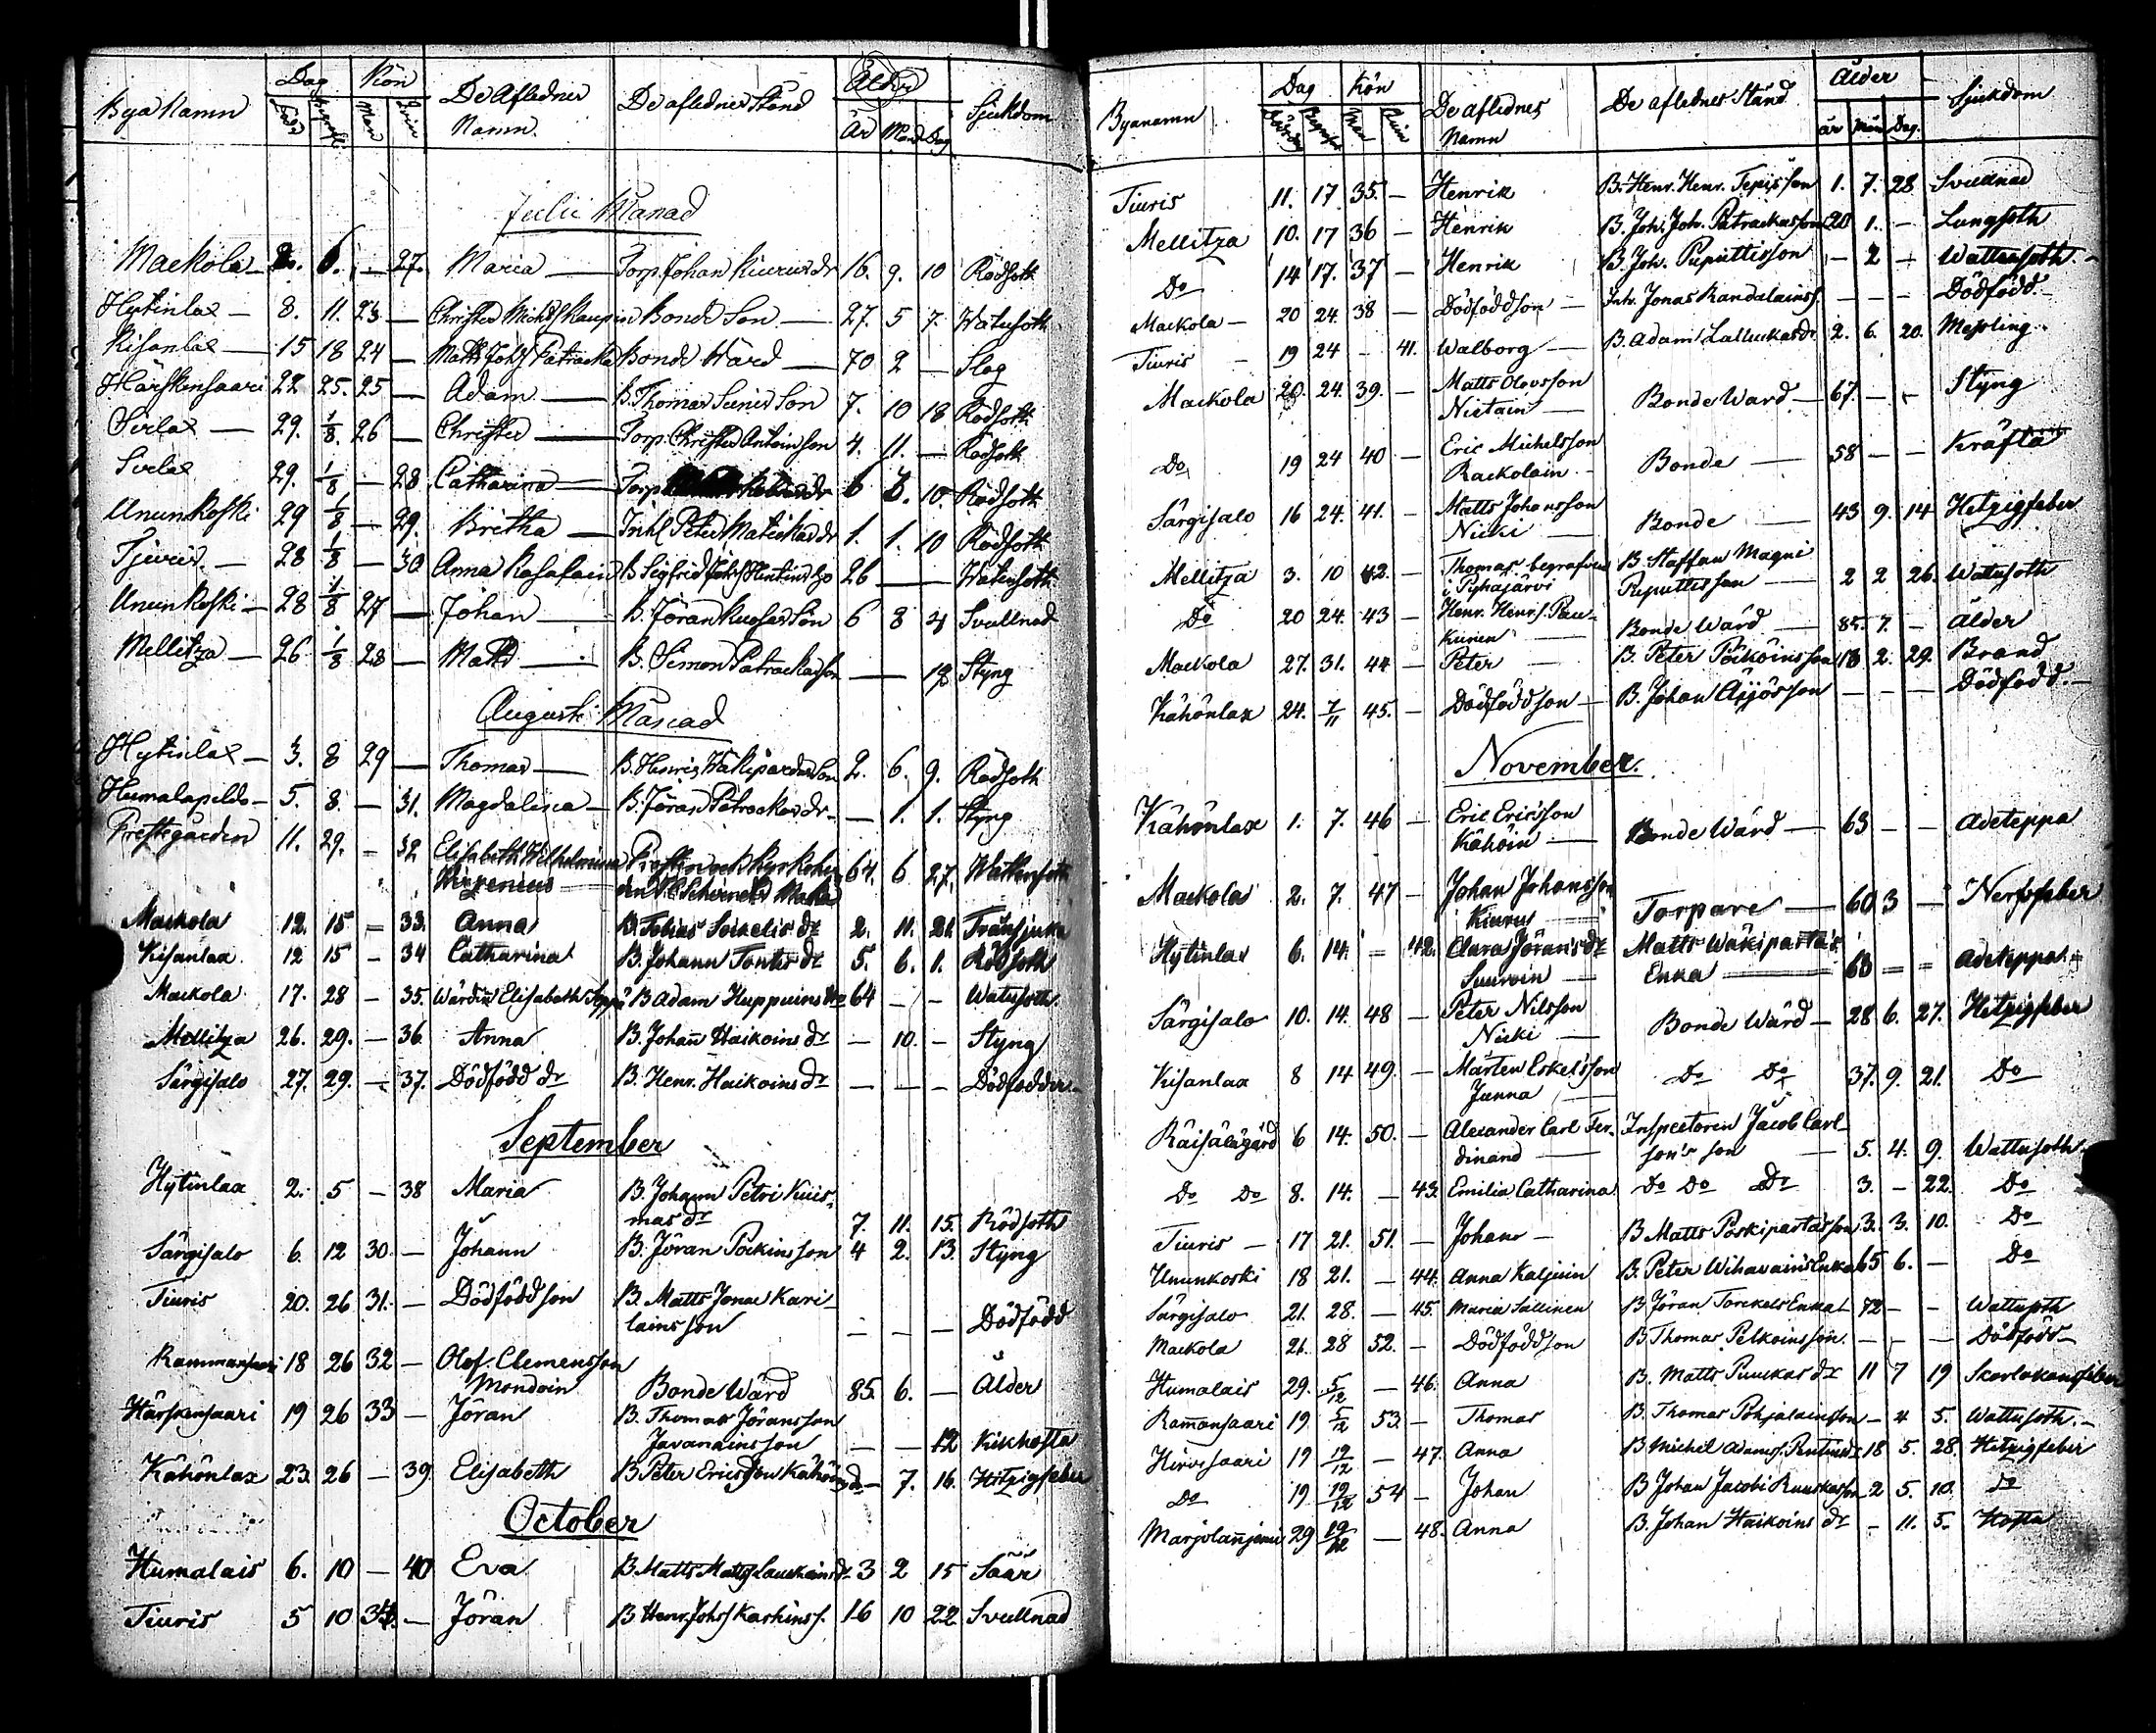 Bya Namn Dag Kön De Aflednes Namn. De aflednes Stånd Ålder Sjukdom
Död Begrafn Man Qvin År Månd Dag
Julii Månad
Mackola 2. 6. — 27. Maria — Torp. Johan Kiurus dr 16. 9. 10 Rödsoth
Hytinlax — 8. 11. 23 — Christer Michls Kaupin Bonde Son — 27. 5 7. Watusoth
Kisanlax — 15 18 24 — Matts Johs Patracka Bonde Wärd — 70 2 — Slag
Härskensaari 22 25. 25 — Adam — B. Thomas Seines Son 7. 10 18 Rödsoth
Sirlax — 29. 1/8. 26 — Christer — Torp. Christer Antoin son 4. 11. — Rödsoth
Sirlax 29. 1/8 — 28 Catharina — Torp dr 6 10. Rödsoth
Ununkoski 29 1/8 — 29. Britha — Inhl Peter Matickas dr 1. 1. 10 Rödsoth
Tjuris. — 28 1/8 — 30 Anna Kasafain B Sigfrid Johs 26 — — Watusoth
Ununkoski — 28 1/8 27 — Johan — B. Jöran Kuosas Son 6 8 4 Svullnad
Mellitza — 26 1/8 28 — Matts — B. Simon Patrackas son — — 18 Styng
Augusti Månad
Hytinlax — 3. 8 29 — Thomas — B. Henric Wäkipardas Son 2. 6. 9. Rödsoth
Humalapeldo — 5. 8. — 31. Magdalena — B. Jöran Patrackas dr — 1. 1. Styng
Prestgården 11. 29. — 32 Elisabeth Wilhelmina Prosten och Kyrkoher 64. 6 27. Wattusoth
Wirzenius den Maka
Mackola 12. 15 — 33. Anna B. Tobias Soikelis dr 2. 11. 21. Trånsjuka
Kisanlax 12 15 — 34 Catharina B. Johann Tontis dr 5. 6. 1. Rödsoth
Mackola 17. 28 — 35. Wärdin Elisabeth Seppä B Adam Huppuins 64 — — Watusoth
Mellitza 26. 29. — 36 Anna B. Johan Haikoins dr — 10. — Styng
Särgisalo 27. 29. — 37. Dödfödd dr B. Henr. Haikoins dr — — — Dödfödder —
September
Hytinlax 2. 5 — 38 Maria B. Johann Petri Kuis-
mas dr 7. 11. 15. Rödsoth
Särgisalo 6. 12 30. — Johann B. Jöran Poikinsson 4 2. 13. Styng
Tiuris 20. 26 31. — Dödfödd son B. Matts Jonae Kari-
lains son — — — Dödfödd
Rammansaari 18 26 32 — Olof. Clemensson
Mondoin Bonde Wärd 85. 6. — Ålder
Härskensaari 19 26 33 — Jöran B. Thomas Jöransson
Javanainsson — — 12 Kikhosta
Kähönlax 23. 26 — 39 Elisabeth B Peter Ericsson Kähöins dr — 7. 16. Hitzigfeber
October
Humalais 6. 10 — 40 Eva B. Matts Matts Lauckains dr 3 2 15 Säär
Tiuris 5 10 34. — Jöran B Henr. Johs Karhins s. 16 10 22 Svullnad
Byanamn Dag Kön De aflednes Namn De aflednes Stånd Ålder Sjukdom
år Mån Dag.
Tiuris 11. 17. 35. — Henrik B. Henr. Henr. Tepisson 1. 7. 28 Svullnad
Mellitza 10. 17 36 — Henrik B. Joh. Joh. Patrackasson 20 1. — Lungsoth
Do 14 17. 37 — Henrik B. Joh. Puputtisson — 2 — Wattusoth. —
Mackola — 20 24. 38 — Dödfödd son — Inh. Jonas Randalains s. — — — Dödfödd —
Tiuris — 19 24 — 41. Walborg — B. Adam Lalluckas dr 2. 6. 20. Messling
Mackola 20. 24. 39. — Matts Olovsson
Nistain — Bonde Ward — 67. — — Styng
Do 19 24 40 — Eric Michelsson
Rackolain — Bonde — 58 — — Kräfta
Särgisalo 16 24. 41. — Matts Johansson
Nicki — Bonde — 43 9. 14 Hetzigfeber
Mellitza 3. 10 42. — Thomas begrafven B. Staffan Magni
i Pyhäjärvi Puputtisson — 2 2 26. Wattusoth
Do 20 24. 43 — Henr. Henrs. Pau-
kunen Bonde Wärd — 85. 7. — Ålder
Mackola 27. 31. 44 — Peter — B. Peter Pöiköins son 18 2. 29. Brand
Kähönlax 24. 7/11 45. — Dödfödd son — B. Johan Äijösson — — — Dödfödd. —
November.
Kähönlax 1. 7. 46 — Eric Ericsson
Kähöin — Bonde Wärd — 63 — — Adeteppa
Mackola 2. 7. 47 — Johan Johansson
Kiurus — Torpare — 60 3 — Nerffeber
Hytinlax 6. 14. — 42. Clara Jörans dr Matts Wäkiparta's
Suuroin — Enka — 63 — — Adeteppa
Särgisalo 10. 14. 48 — Peter Nilsson
Nicki — Bonde Wärd — 28 6. 27. Hetzigfeber
Kisanlax 8 14 49. — Mårten Eskelsson
Junna — Do Do 37. 9. 21. Do
Räisälägård 6 14. 50. — Alexander Carl Fer- Inspectoren Jacob Carl-
dinand — son's son — 5. 4. 9. Wattusoth.
Do Do 8. 14. — 43. Emilia Catharina Do Do Dr 3. — 22. Do
Tiuris — 17 21. 51. — Johan — B Matts Poskipartasson 3. 3. 10. Do
Ununkoski 18 21. — 44. Anna Kaljuin B. Peter Wihavains Enka 65 6. — Do
Särgisalo 21. 28. — 45. Maria Sallinen B Jöran Torckels Enka 72 — — Wattusoth
Mackola 21. 28 52. — Dödfödd son B Thomas Pelkoinsson. — — — Dödfödd —
Humalais 29. 5/12 — 46. Anna B. Matts Puuckas dr 11 7 19 Skarlakansfeber
Ramansaari 19 5/12 53 — Thomas B. Thomas Pohjalainsson — 4 5. Wattusoth. —
Hirvisaari 19 19/12 — 47. Anna B Michel Adams. Pentins dr 18 5. 28. Hetzigfeber
Do 19 19/12 54 — Johan B Johan Jacobi Ruuskasson 2 5. 10. Do
Marjolanjemi 29 19/12 — 48. Anna B. Johan Haikoins dr — 11. 5. Hosta